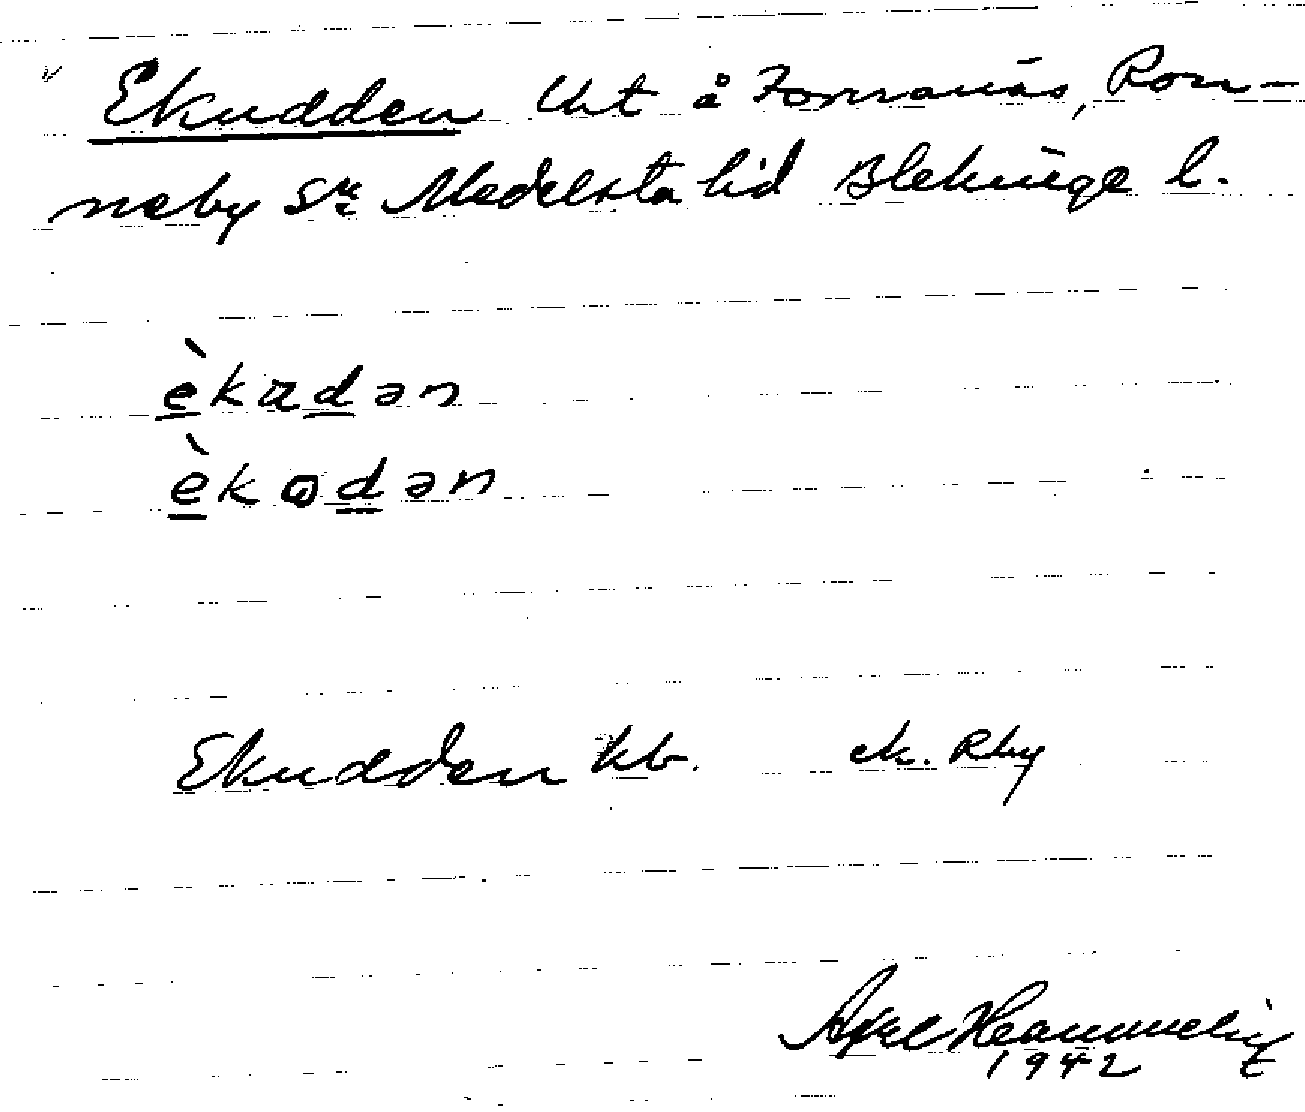 Ekudden Uht å Tornanäs, Ron-
neby sn Medelsta hd Blekinge l.
èkadən
èkodən
Ekudden kb. ek. Rby
Axel
1942